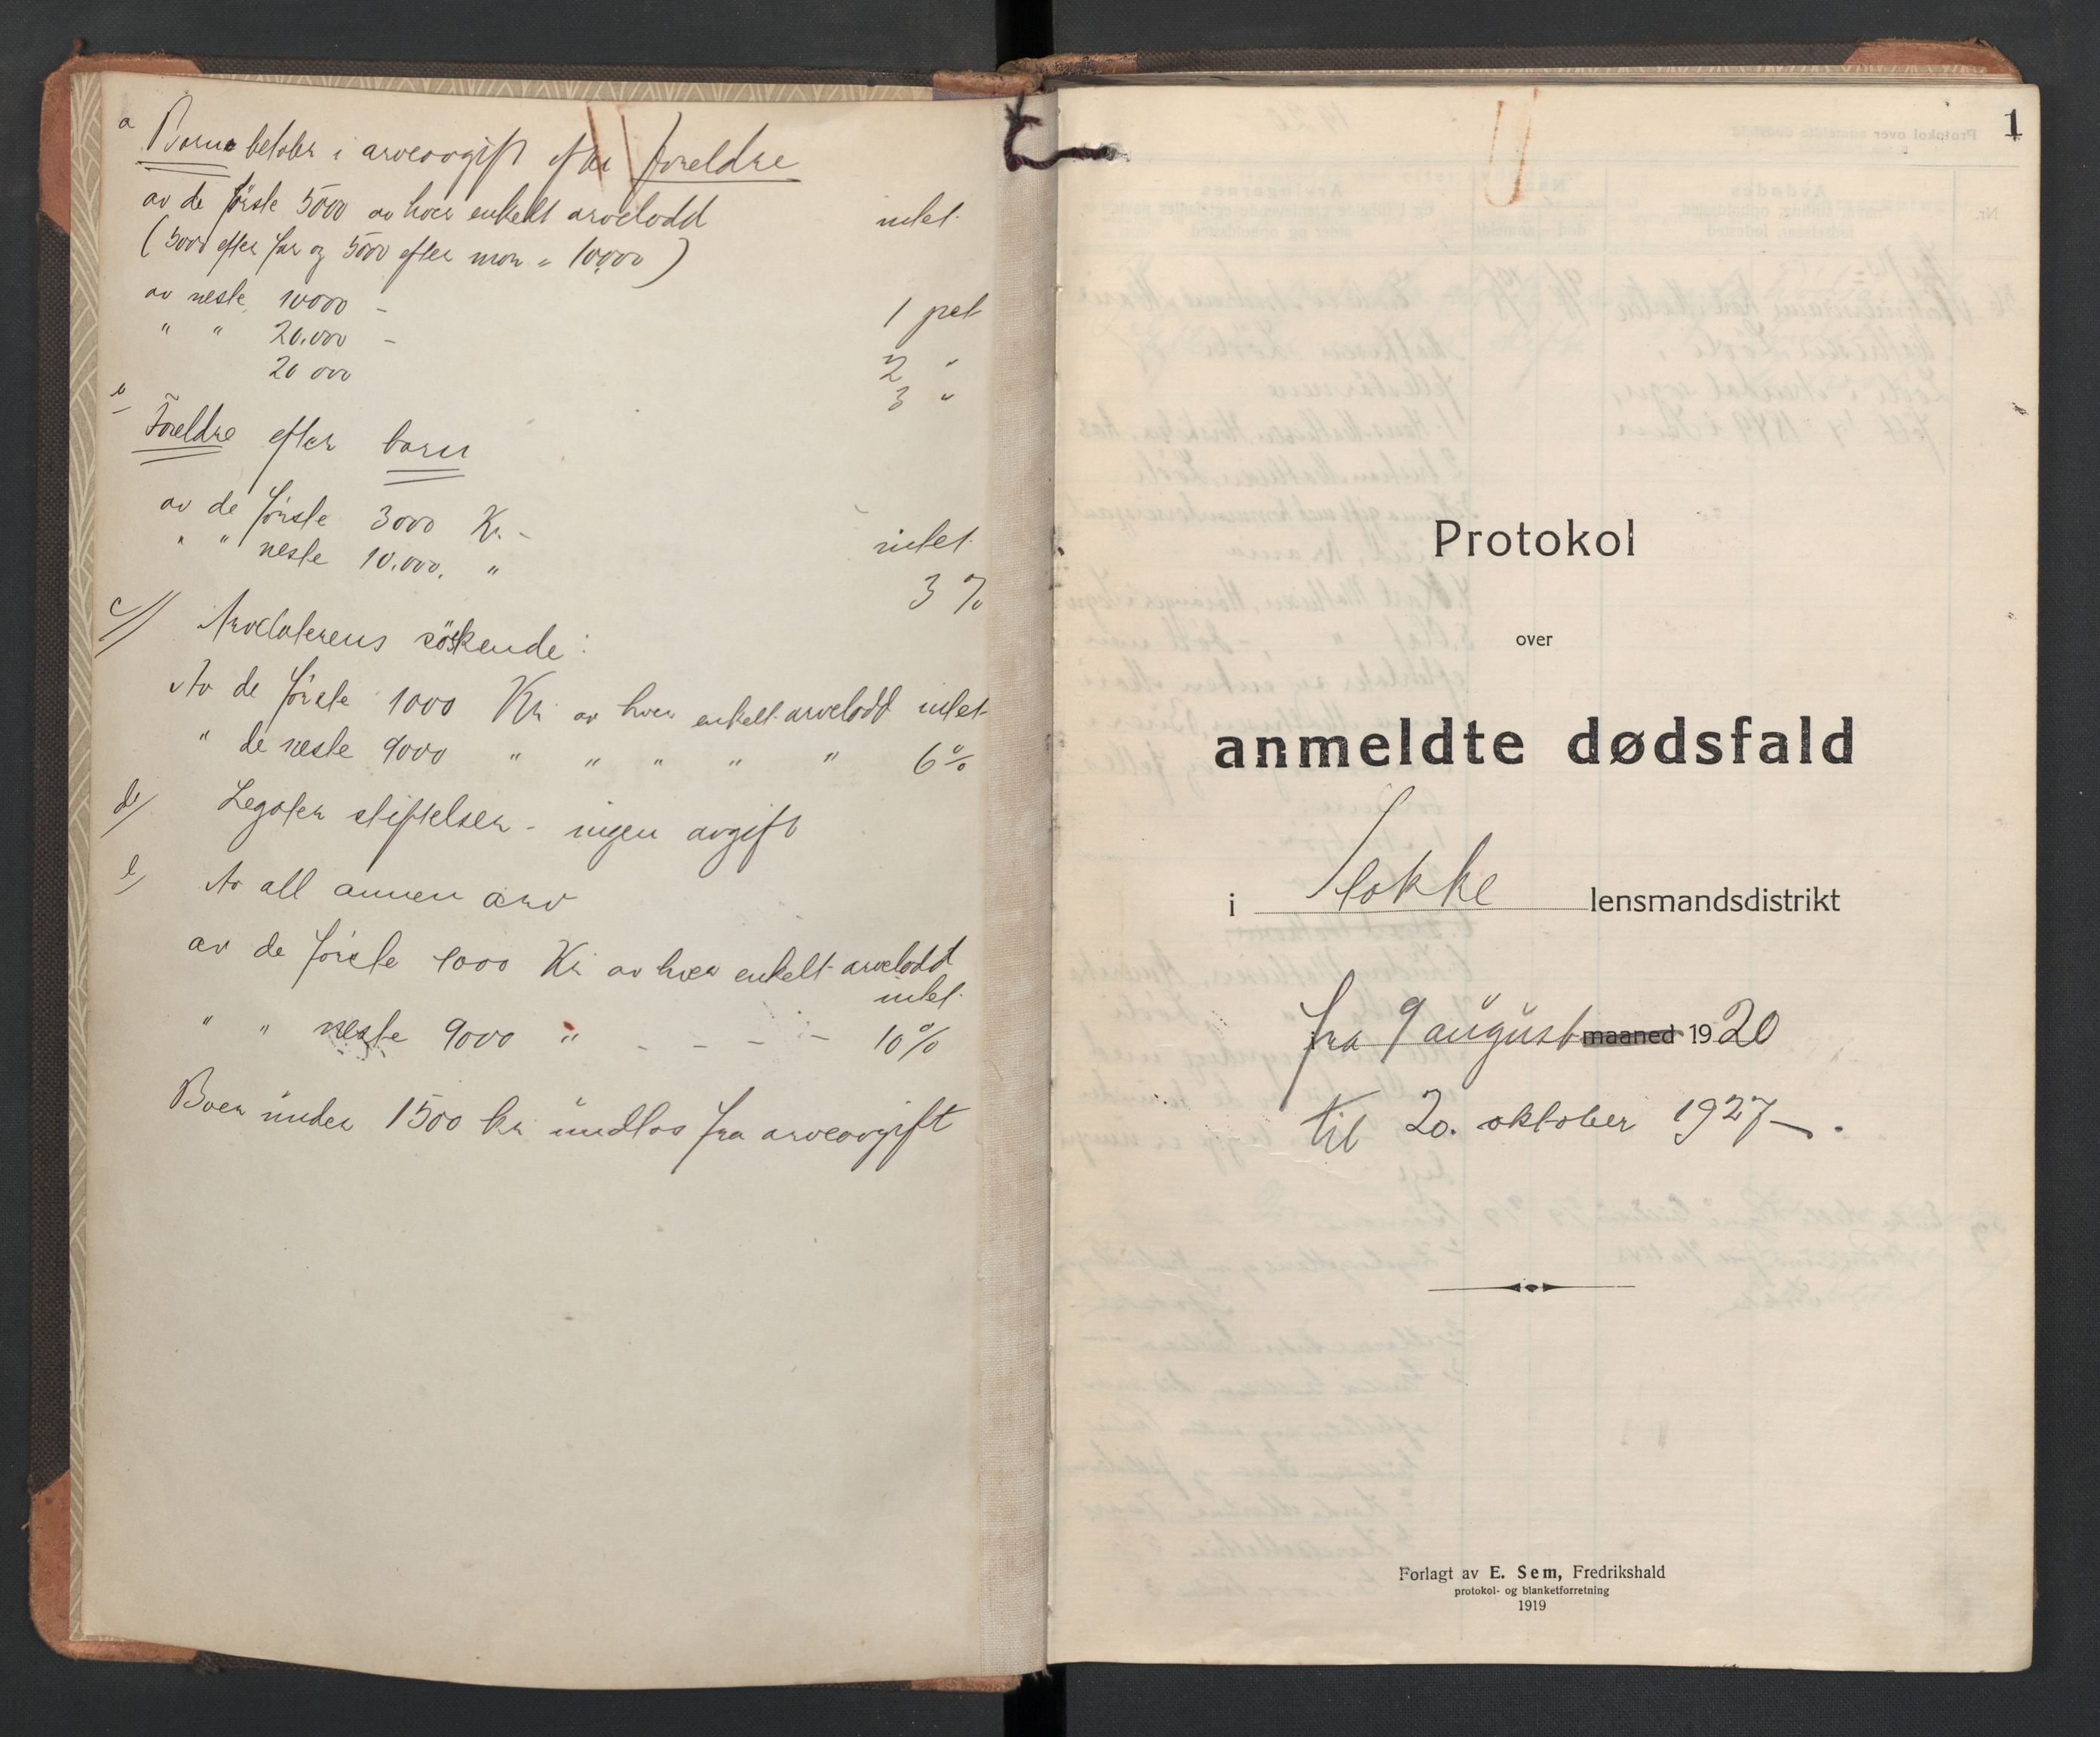 a Barn betaler i arveavgift efter foreldre
av de første 5000 av hver enkelt arvelodd intet
(5000 efter far og 5000 efter mor = 10,000)
av neste 10000 - 1 pct
" " 20.000 - 2 "
20 000 3 "
b
Foreldre efter barn
av de første 3000 Kr. - intet
" " neste 10.000. " 3 %
c) Arvelaterens söskende:
Av de første 1000 Kr av hver enkelt arvelodd intet
" de neste 9000 " " " " " 6 %
d) Legater stiftelser - ingen avgift
e) Av all annen arv
av de første 1000 Kr av hver enkelt arvelodd
intet
" " neste 9000 " - - - - 10 %
Boer under 1500 kr undlas fra arveavgift
1
Protokol
over
anmeldte dødsfald
i Stokke lensmandsdistrikt
fra 9 august maaned 1920
til 20. oktober 1927.
Forlagt av E. Sem, Fredrikshald
protokol- og blanketforretning
1919